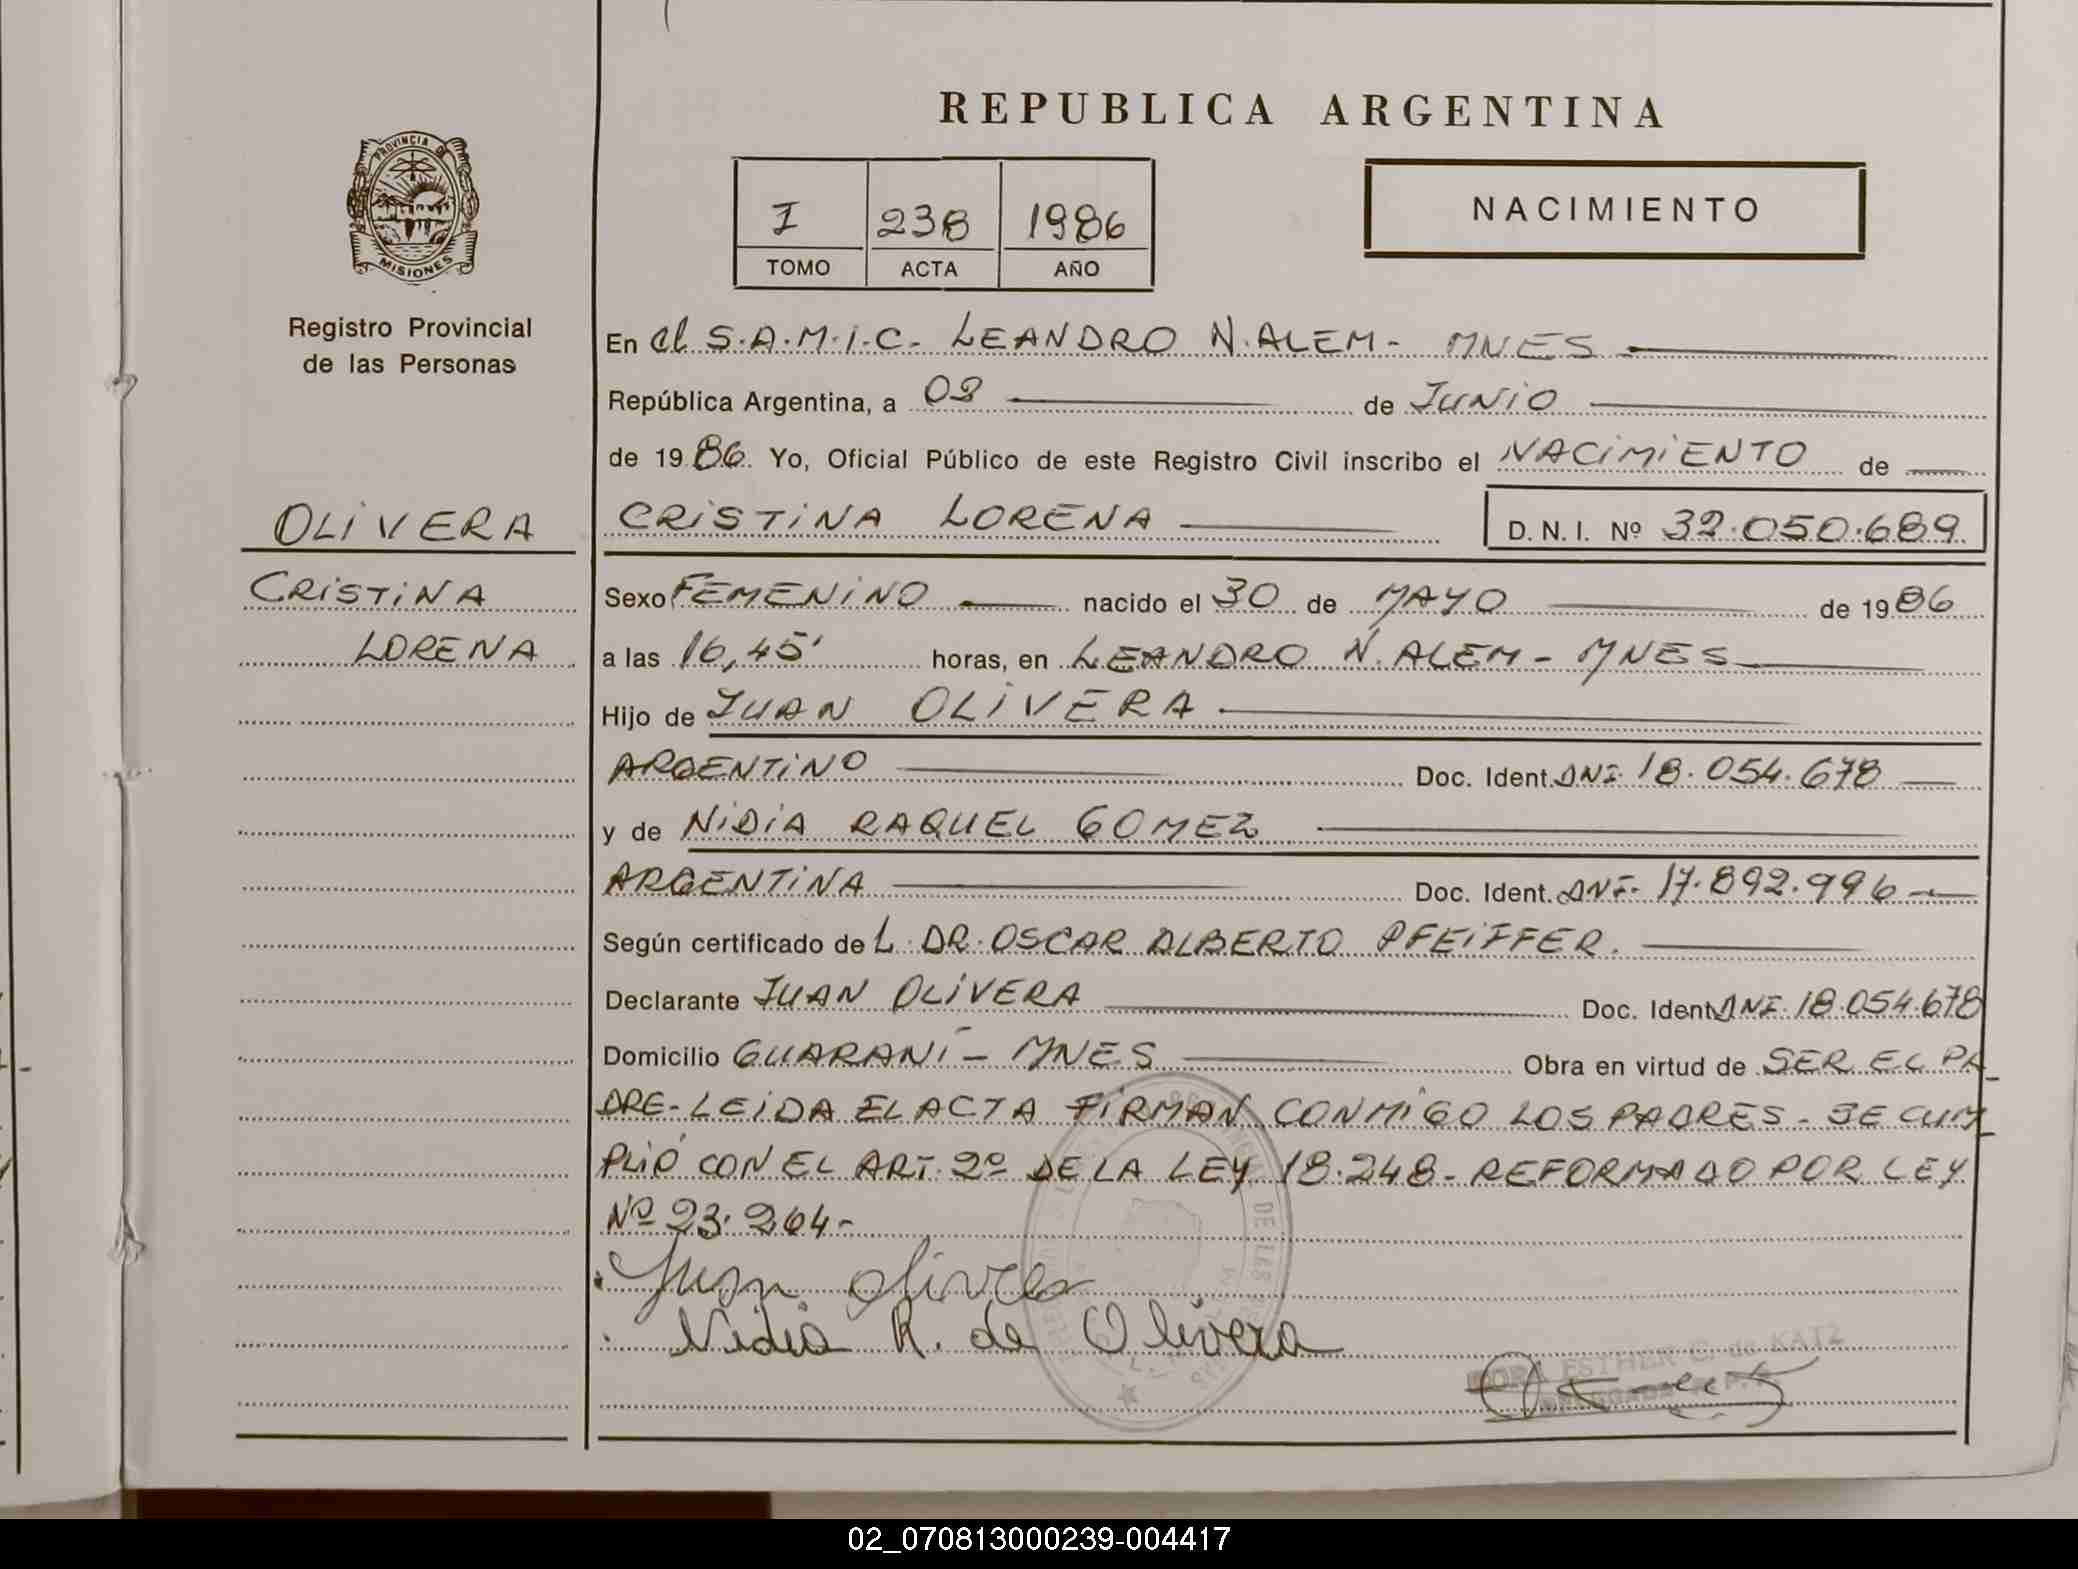 REPUBLICA ARGENTINA
PROVINCIA DE
MISIONES
Registro Provincial
de las Personas
I 238 1986
TOMO ACTA AÑO
NACIMIENTO
En el S.A.M.I.C. LEANDRO N. ALEM - MNES
República Argentina, a 02 de JUNIO
de 1986. Yo, Oficial Público de este Registro Civil inscribo el NACIMIENTO de
OLIVERA
CRISTINA LORENA
D. N. I. Nº 32.050.689
CRISTINA
LORENA
Sexo FEMENINO nacido el 30 de MAYO de 1986
a las 16,45' horas, en LEANDRO N. ALEM - MNES
Hijo de JUAN OLIVERA
ARGENTINO Doc. Ident. DNI. 18.054.678
y de NIDIA RAQUEL GOMEZ
ARGENTINA Doc. Ident. DNI. 17.892.996
Según certificado de L. DR. OSCAR ALBERTO PFEIFFER.
Declarante JUAN OLIVERA Doc. Ident. DNI. 18.054.678
Domicilio GUARANÍ - MNES Obra en virtud de SER EL PA
DRE - LEIDA EL ACTA FIRMAN CONMIGO LOS PADRES - SE CUM
PLIÓ CON EL ART. 2º DE LA LEY 18.248 - REFORMADO POR LEY
Nº 23.264 -
Juan Olivera
Nidia R. de Olivera
DORA ESTHER C. de KATZ
02_070813000239-004417